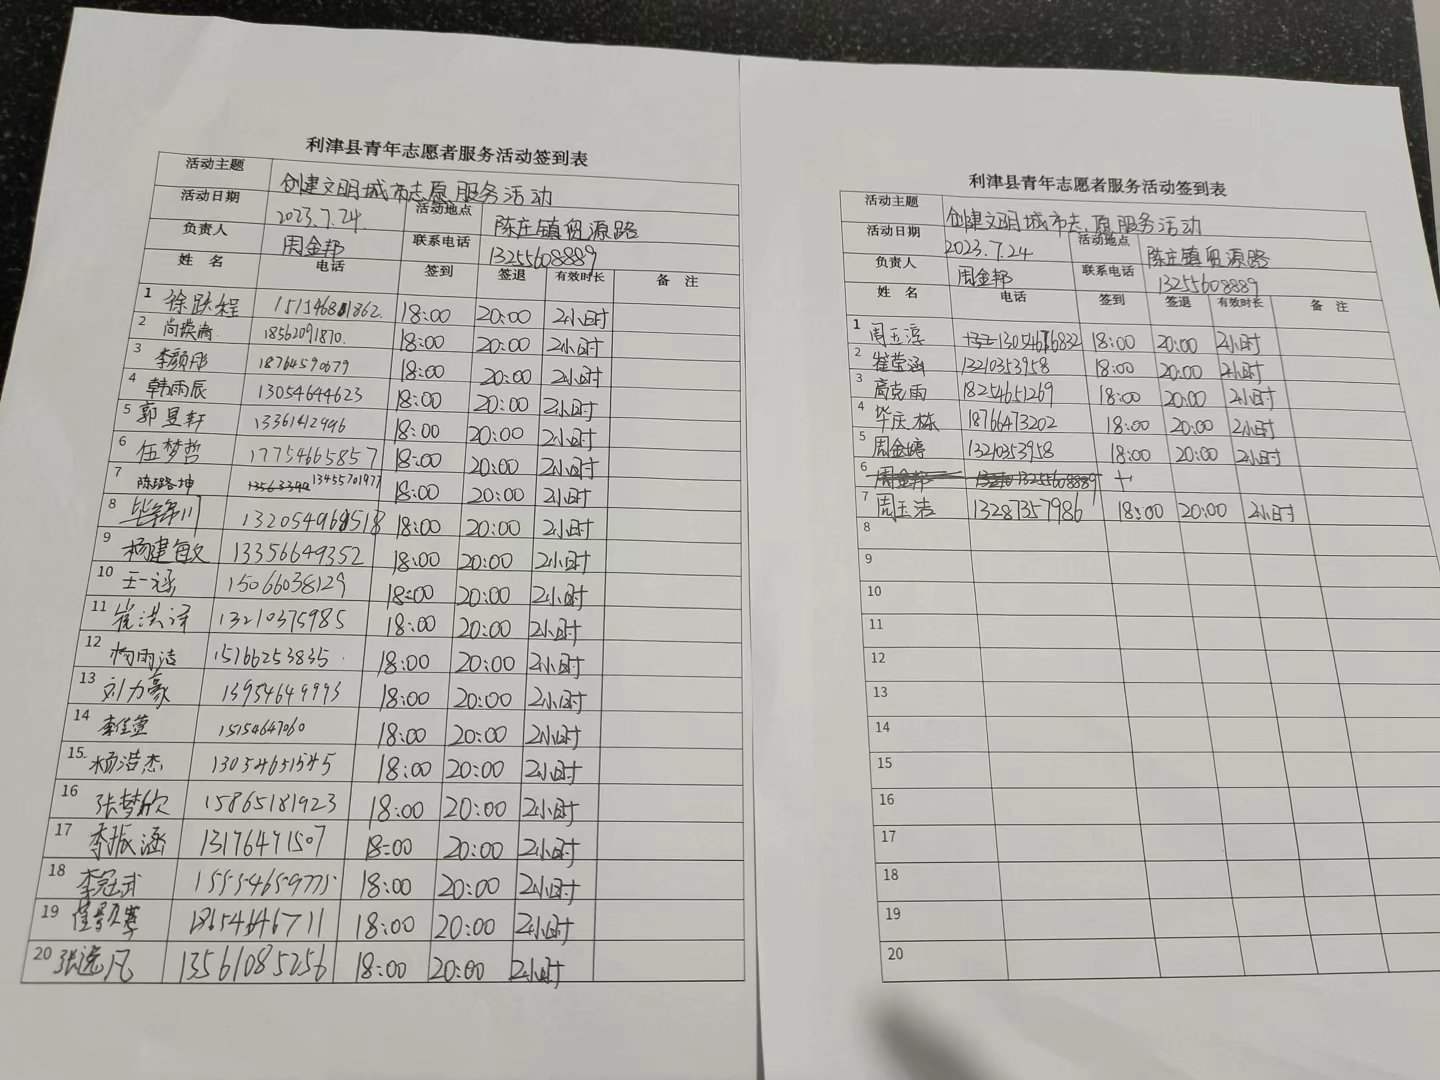 利津县青年志愿者服务活动签到表
活动主题 创建文明城市志愿服务活动
活动日期 2023.7.24. 活动地点 陈庄镇贸源路
负责人 周金邦 联系电话 13255608889
姓名 电话 签到 签退 有效时长 备注
1 徐跃程 15154681862. 18:00 20:00 2小时
2 18562091870. 18:00 20:00 2小时
3 李颜彤 18764590679 18:00 20:00 2小时
4 韩雨辰 13054644623 18:00 20:00 2小时
5 郭昱轩 13361412996 18:00 20:00 2小时
6 伍梦哲 17754665857 18:00 20:00 2小时
7 陈璐坤 13455701977 18:00 20:00 2小时
8 18:00 20:00 2小时
9 杨建敏 13356649352 18:00 20:00 2小时
10 王一涵 15066038129 18:00 20:00 2小时
11 崔洪译 13210375985 18:00 20:00 2小时
12 杨雨洁 15166253835. 18:00 20:00 2小时
13 刘力豪 13954649993 18:00 20:00 2小时
14 李佳萱 15154647060 18:00 20:00 2小时
15. 杨浩杰 13054651545 18:00 20:00 2小时
16 张梦欣 15865181923 18:00 20:00 2小时
17 李振涵 13176471507 18:00 20:00 2小时
18 李冠武 15554659775 18:00 20:00 2小时
19 18654646711 18:00 20:00 2小时
20 张逸凡 13561085256 18:00 20:00 2小时
利津县青年志愿者服务活动签到表
活动主题 创建文明城市志愿服务活动
活动日期 2023.7.24 活动地点 陈庄镇贸源路
负责人 周金邦 联系电话 13255608889
姓名 电话 签到 签退 有效时长 备注
1 周玉滨 13054676832 18:00 20:00 2小时
2 崔莹涵 13210353958 18:00 20:00 2小时
3 高克雨 18254651269 18:00 20:00 2小时
4 毕庆栋 18766473202 18:00 20:00 2小时
5 周金婷 13210353958 18:00 20:00 2小时
6 周金邦 13255608889
7 周玉洁 13287357986 18:00 20:00 2小时
8
9
10
11
12
13
14
15
16
17
18
19
20